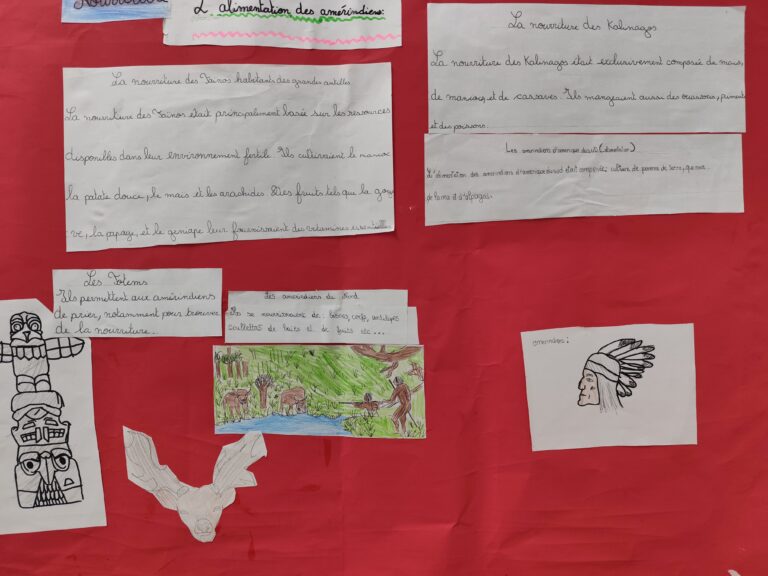 Nourriture
L'alimentation des amérindiens:
La nourriture des Taïnos habitants des grandes antilles
La nourriture des Taïnos était principalement basée sur les ressources
disponibles dans leur environnement fertile. Ils cultivaient le manioc
la patate douce, le maïs et les arachides. Des fruits tels que la goya
ve, la papaye, et le genipape leur fournissaient des vitamines essentielles
La nourriture des Kalinagos
La nourriture des Kalinagos était exclusivement composée de maïs,
de manioc, et de cassaves. Ils mangeaient aussi des , piments
et des poissons.
Les amérindiens d'amerique du sud
L'alimentation des amerindiens d'amerique du sud était composée; culture de pomme de terre, que
de lama et d'alpagas.
Les Totems
Ils permettent aux amérindiens
de prier, notamment pour trouver
de la nourriture...
Les amerindiens du Nord
Ils se nourrissaient de: bisons, cerfs, antilopes
cueillettes de baies et de fruits etc...